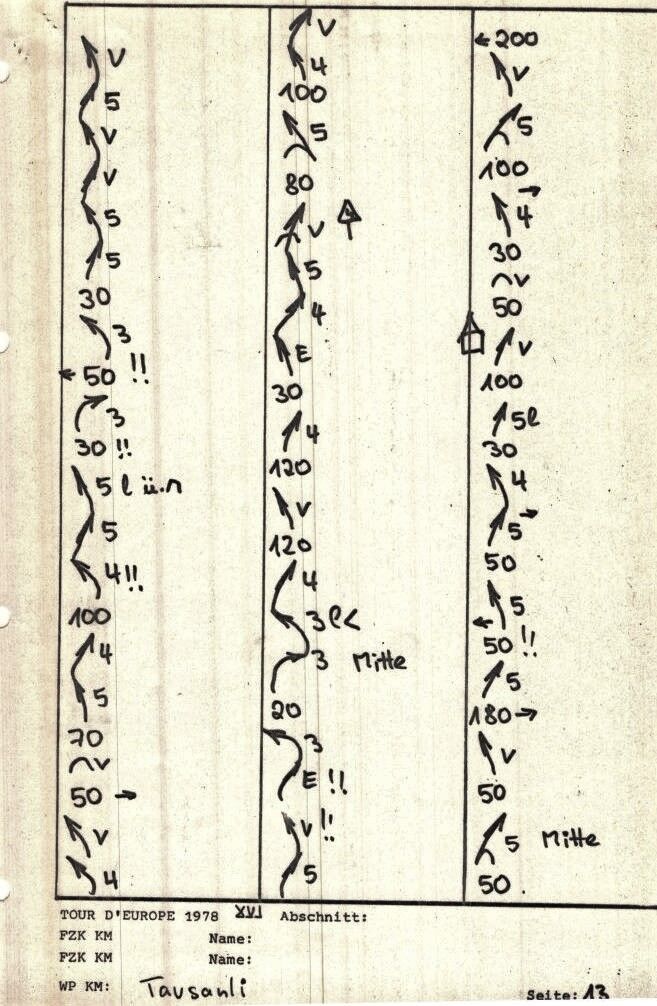 V
5
V
V
5
5
30
3
50 !!
3
30 !!
5 l ü.n
5
4 !!
100
4
5
70
V
50 →
V
4
V
4
100
5
80
V
5
4
E
30
4
120
V
120
4
3 l <
3 Mitte
20
3
E !!
V !!
5
← 200
V
5
100
→
4
30
V
50
V
100
5 l
30
4
5 →
50
5
←
50 !!
5
180 →
V
50
5 Mitte
50
TOUR D'EUROPE 1978 XVI Abschnitt:
FZK KM Name:
FZK KM Name:
WP KM: Tavsanli
Seite: 13